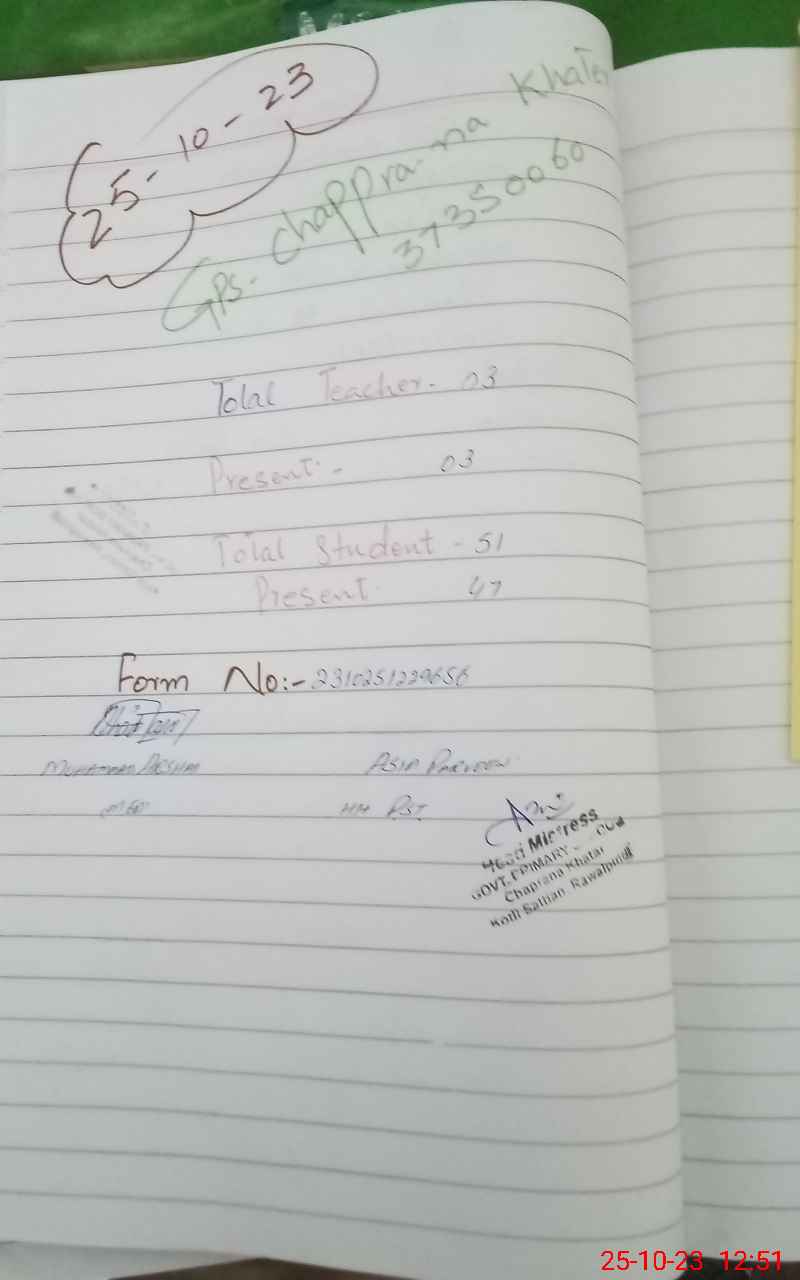 25-10-23
GPS. Chapprana Khater
37350060
Total Teacher. 03
Present. - 03
Total Student - 51
Present. 47
Form No:- 2310251229656
Muhammad Arsham
Asia Parveen
MEA
HM PST
Head Mistress
GOVT. PRIMARY
Chaprana Khatar
Kotli Sattian Rawalpindi
25-10-23 12:51